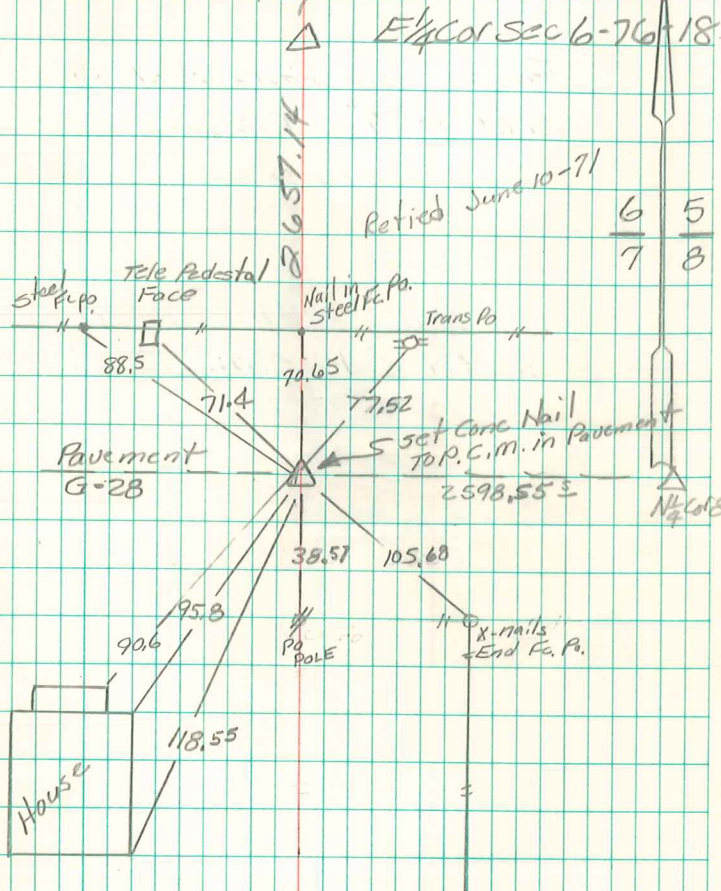 E¼ Cor Sec 6-76-18
2657.14
Retied June 10-71
6 5
7 8
Steel Fc. po.
Tele Pedestal
Face
Nail in
Steel Fc. Po.
Trans Po
88.5
71.4
70.65
77.52
5 set Conc Nail
To P.C.M. in Pavement
Pavement
G-28
2598.55 s
N¼ Cor 8
38.57
105.68
95.8
90.6
Po
POLE
X-nails
End Fc. Po.
118.55
House